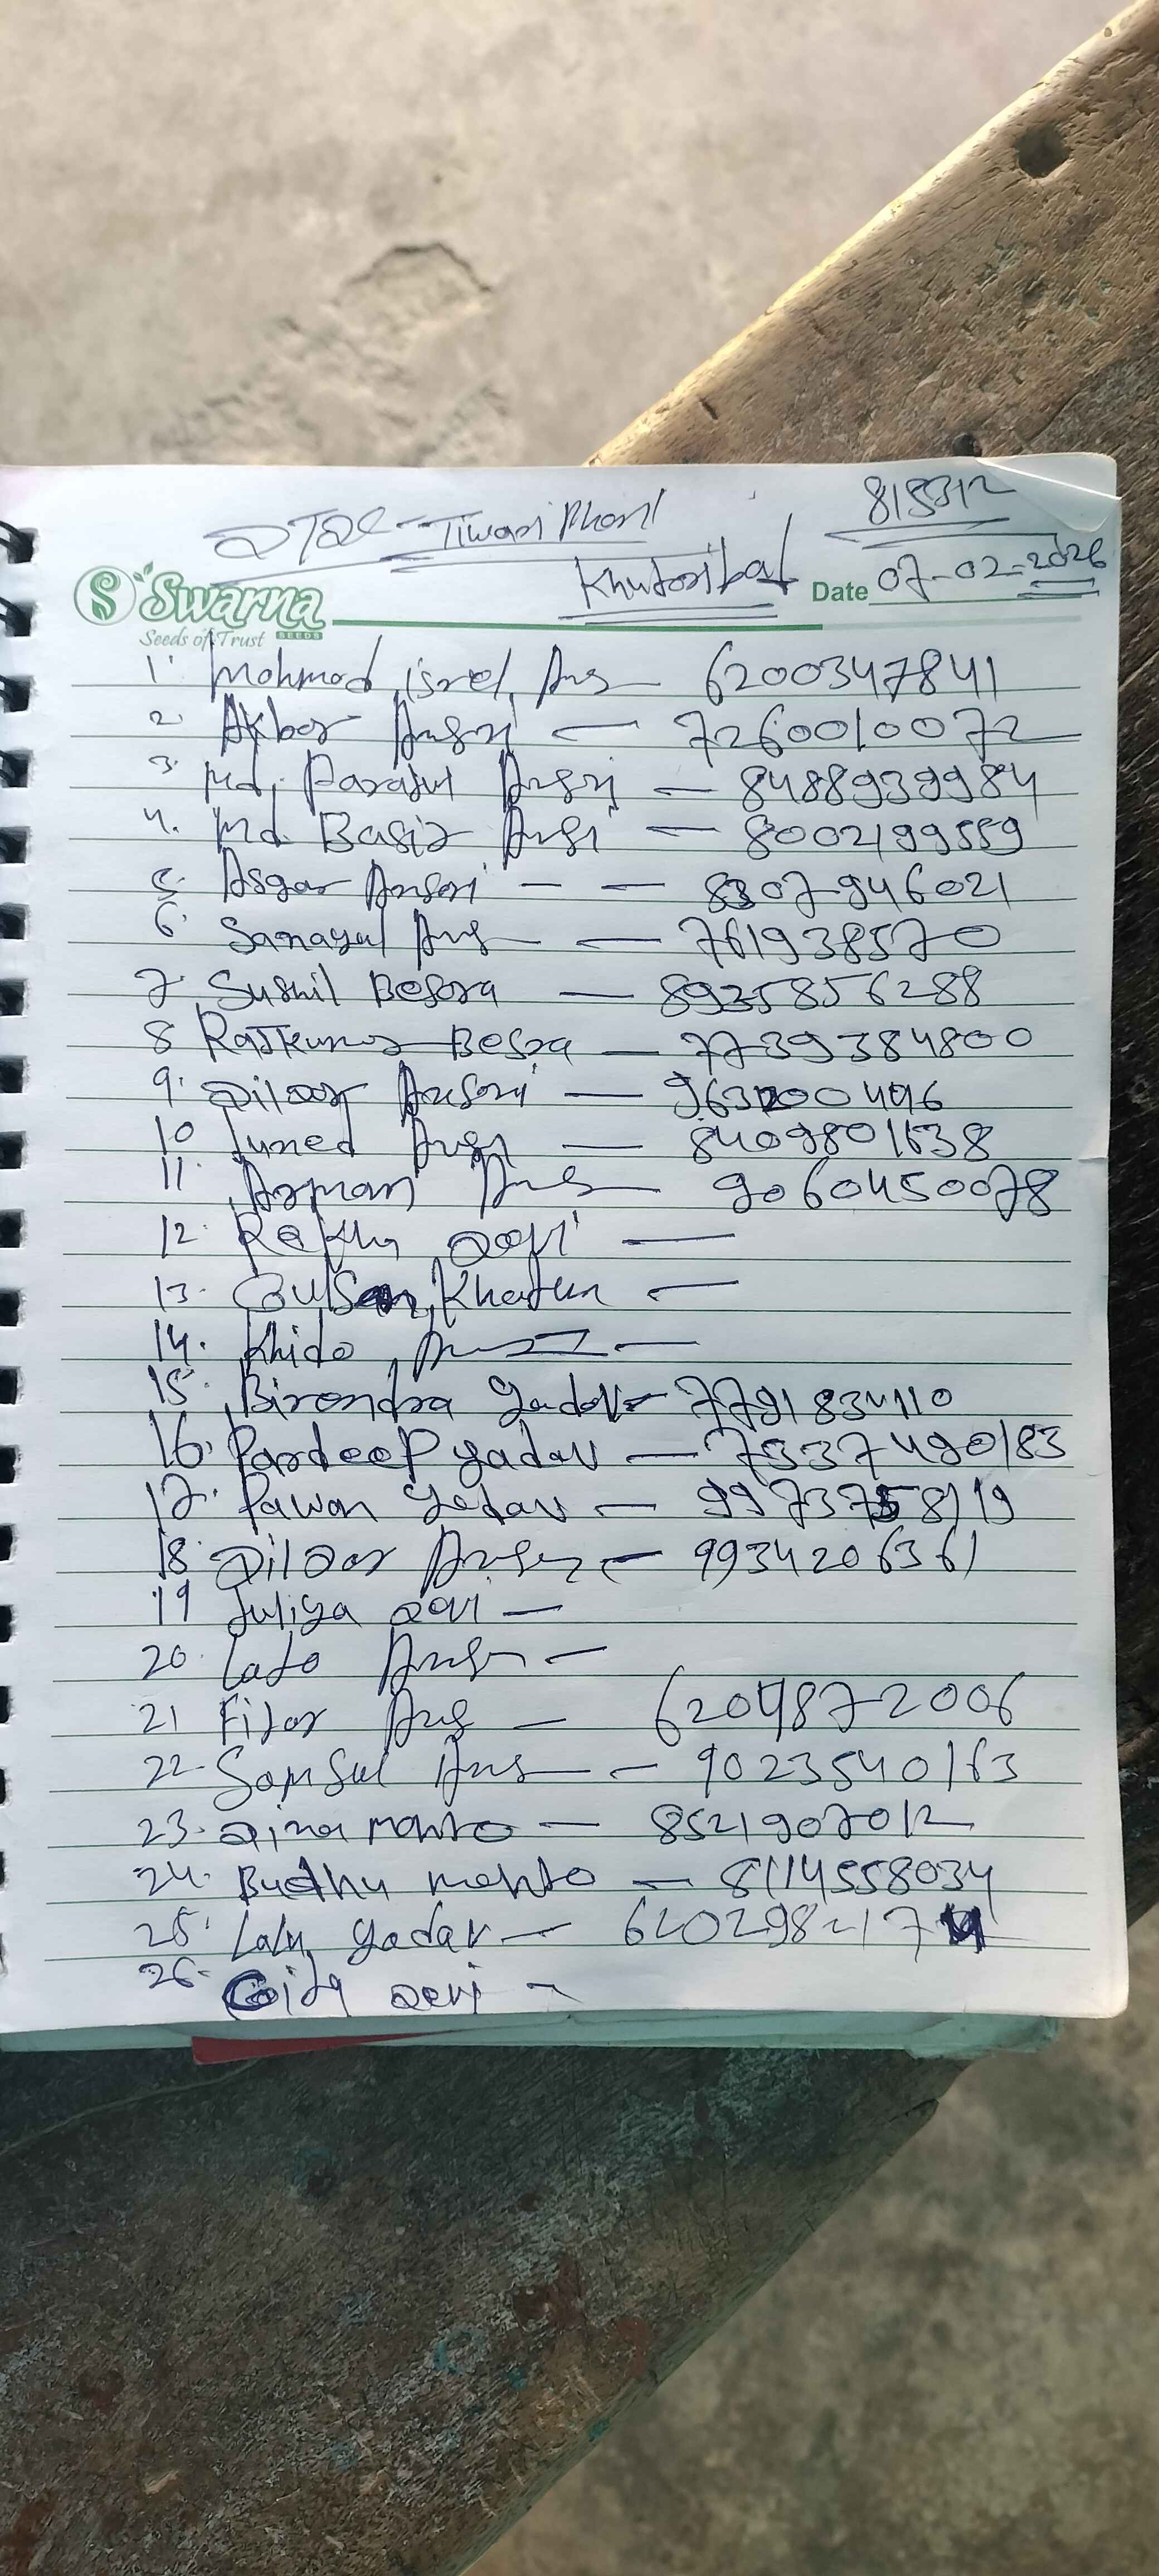 Tiwari Phant 815312
Khutoribat Date 07-02-2026
Swarna
Seeds of Trust SEEDS
1. Mohmad isrel Ans — 6200347841
2. Akbar Ansri — 7260010072
3. Md. Parajul Ansri — 8488939984
4. Md. Basir Ansi — 8002199559
5. Asgar Ansori — — 8307946021
6 Sanayul Ans — — 761938570
7. Sushil Besora — 8935856288
8 RajKumar Besra — 7739384800
9. Dildar Ansori — 963200496
10 Juned Ansri — 8409801638
11. Arman Ans — 9060450078
12. Rekha Devi —
13. Gulsan Khatun —
14. Khido Ans —
15. Birendra Yadav — 7791834110
16. Pardeep yadav — 7337490183
17. Pawan Yadav — 9973758119
18. Dildar Ansri — 9934206361
19 Juliya Devi —
20. Lato Ansri —
21 Fitar Ans — 6204872006
22. Samsul Ans — — 9023540163
23. Dina Mahto — 8521907012
24. Budhu mahto — 8114558034
25. Lalu yadav — 620298217
26. Gita Devi —